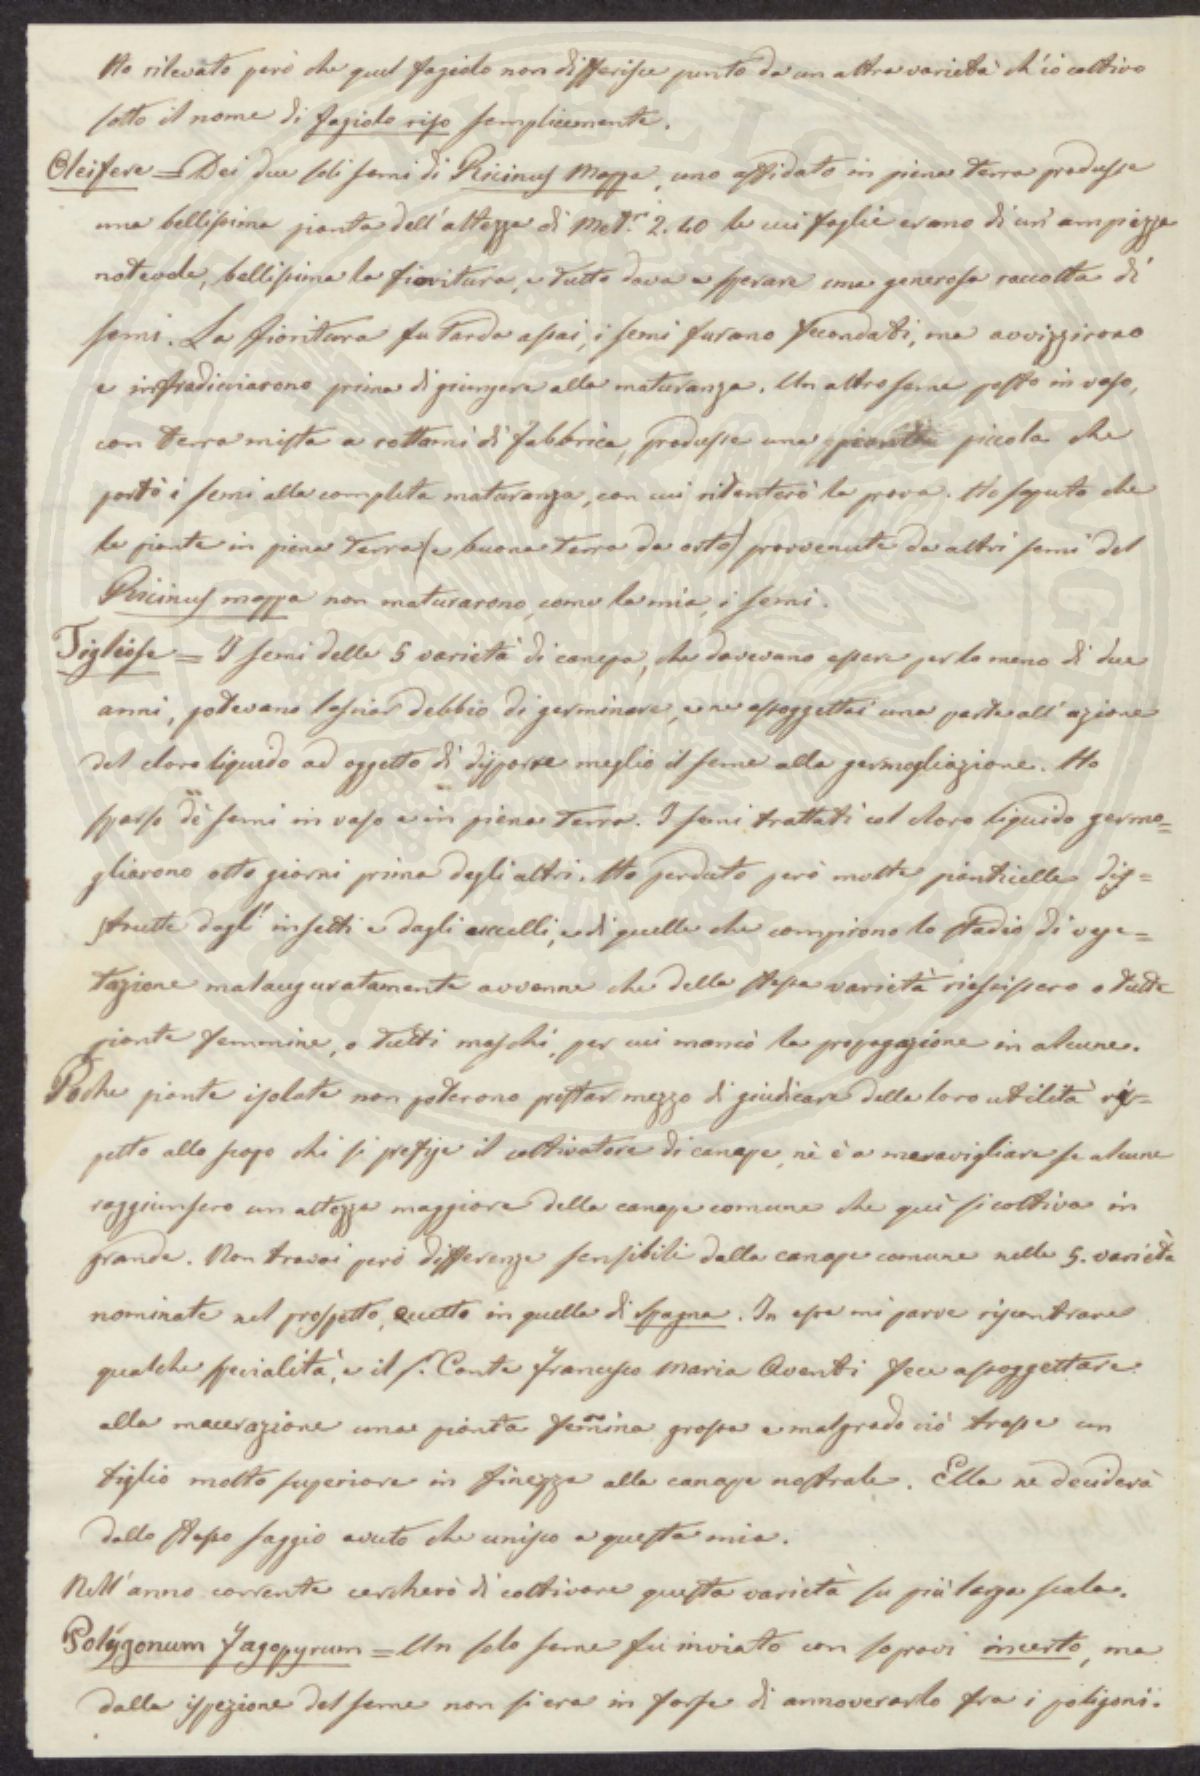 Ho rilevato però che quel fagiolo non differisce punto da un altra varietà ch'io coltivo
sotto il nome di fagiolo riso semplicemente.
Oleifere = Dei due soli semi di Ricinus Mappa, uno affidato in piena terra produsse
una bellissima pianta dell'altezza di Met.ri 2.40 le cui foglie erano di un'ampiezza
notevole, bellissima la fioritura, e tutto dava a sperare una generosa raccolta di
semi. La fioritura fu tarda assai, i semi furono fecondati, ma avvizzirono
e infradiciarono prima di giungere alla maturanza. Un altro seme posto in vaso,
con terra mista a rottami di fabbrica, produsse una pianta piccola che
portò i semi alla completa maturanza, con cui ritenterò la prova. Ho saputo che
le piante in piena terra (e buona terra da orto) provvenute da altri semi del
Ricinus mappa non maturarono, come la mia, i semi.
Tigliose = I semi delle 5 varietà di canepa, che dovevano essere per lo meno di due
anni, potevano lasciar debbio di germinare, e ne assoggettai una parte all'azione
del cloro liquido ad oggetto di disporre meglio il seme alla germogliazione. Ho
sparso de' semi in vaso e in piena terra. I semi trattati col cloro liquido germo=
gliarono otto giorni prima degli altri. Ho perduto però molte pianticelle dis=
strutte dagl'insetti e dagli uccelli, e di quelle che compirono lo stadio di vege=
tazione malauguratamente avvenne che della stessa varietà riescissero o tutte
piante femmine, o tutti maschi, per cui mancò la propagazione in alcune.
Poche piante isolate non poterono prestar mezzo di giudicare della loro utilità ris=
petto allo scopo che si prefige il coltivatore di canape, nè è a meravigliare se alcune
raggiunsero un altezza maggiore della canape comune che quì si coltiva in
grande. Non trovai però differenze sensibili dalla canape comune nelle 5. varietà
nominate nel prospetto, eccetto in quella di Spagna. In essa mi parve riscontrare
qualche specialità, e il S.r Conte Francesco Maria Aventi fece assoggettare
alla macerazione una pianta femmina grossa e malgrado ciò trasse un
tiglio molto superiore in finezza alla canape nostrale. Ella ne deciderà
dallo stesso saggio avuto che unisco a questa mia.
Nell'anno corrente cercherò di coltivare questa varietà su più larga scala.
Polygonum Fagopyrum = Un solo seme fu inviato con sopravi incerto, ma
dalla ispezione del seme non si era in forse di annoverarlo fra i poligoni.